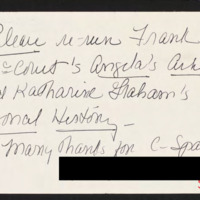 Please re-run Frank
Court's Angela's Ash
Katharine Graham's
sonal History —
Many thanks for C-Spa